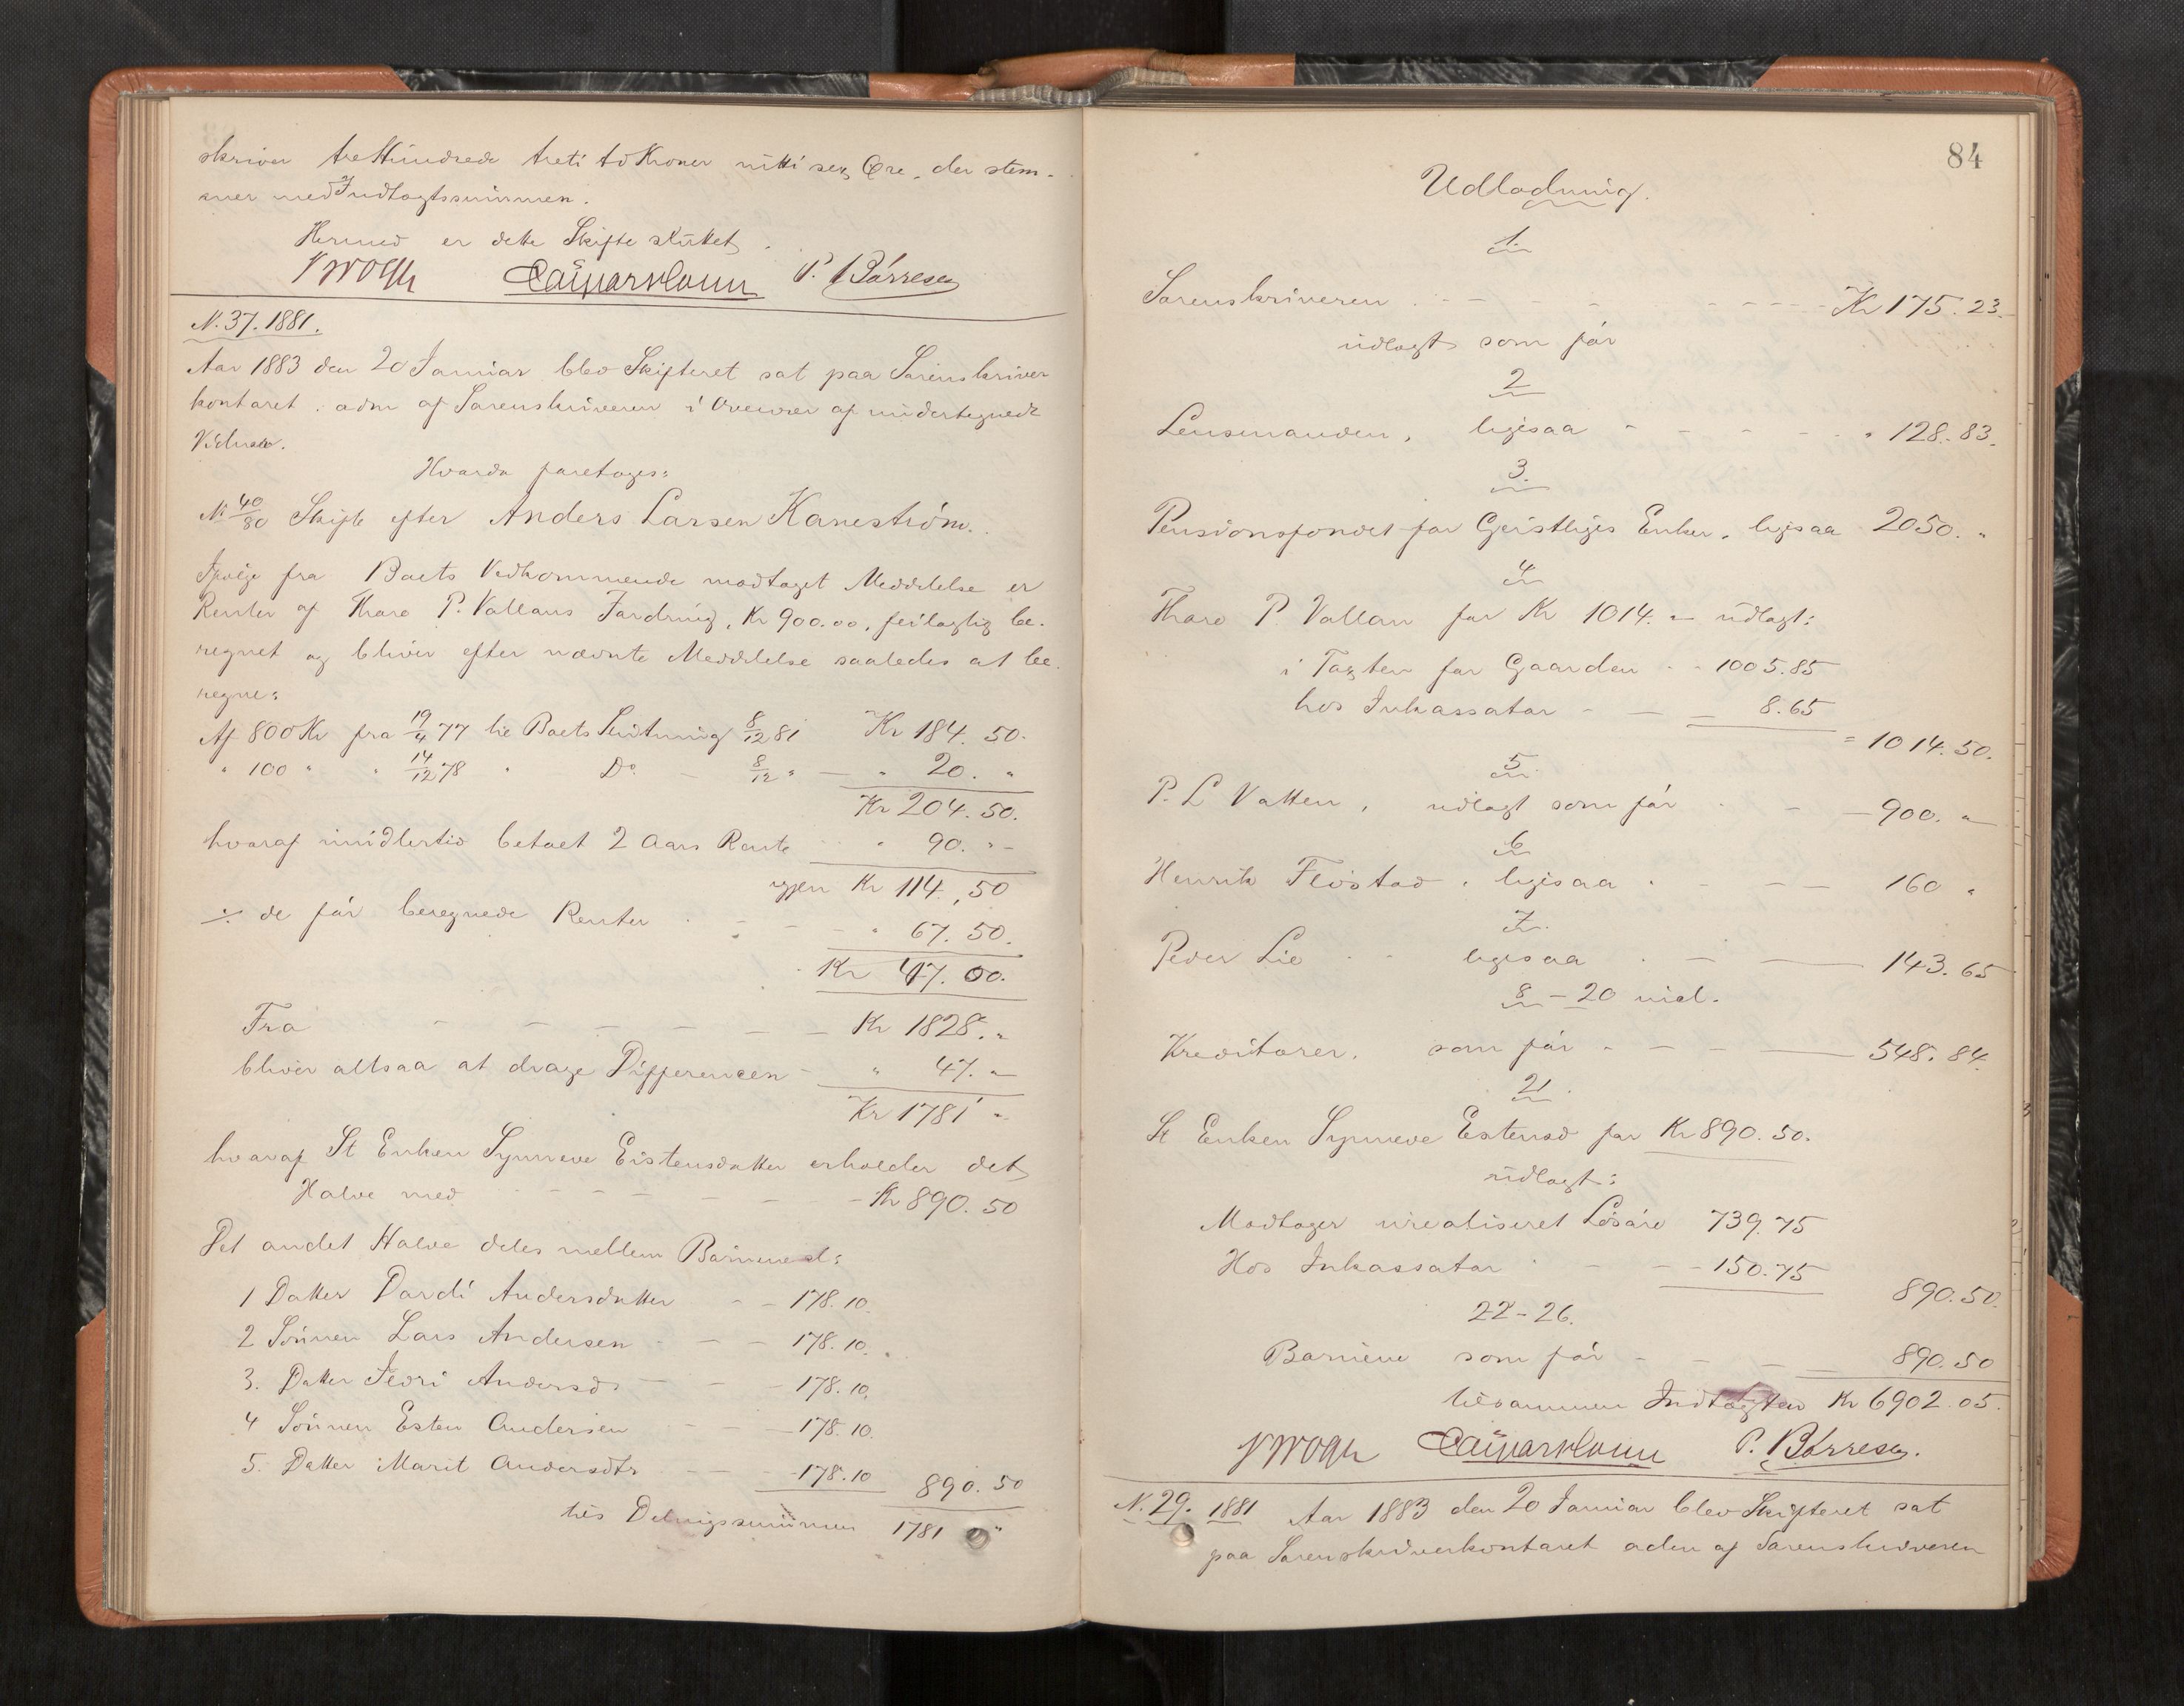 skriver tre Hundrede treti to Kroner nitti sex Øre, der stem-
mer med Indtægtssummen.
Hermed er dette Skifte sluttet.
P. Børresen
N. 37. 1881.
Aar 1883 den 20 Januar blev Skifteret sat paa Sorenskriver
kontoret, adm af Sorenskriveren i Overvær af undertegnede
Vidner.
Hvorda foretoges:
No 40/80 Skifte efter Anders Larsen Kanestrøm.
Ifølge fra Boets Vedkommende modtaget Meddelelse er
Renter af Thore P. Vallans Fordring, Kr 900.00, feilagtig be-
regnet og bliver efter nævnte Meddelelse saaledes at be-
regne:
Af 800 Kr fra 19/4 77 til Boets Slutning 8/12 81 Kr 184. 50.
" 100 " " 14/12 78 " Do. - 8/12 " — " 20. "
Kr 204. 50.
hvoraf imidlertid betalt 2 Aars Rente " 90. "
igjen Kr 114, 50
÷ de før beregnede Renter - " 67. 50.
Kr 47. 00.
Fra Kr 1828. "
bliver altsaa at drage Differencen " 47. "
Kr 1781 "
hvoraf St Enken Synneve Eistensdatter erholder det
Halve med Kr 890. 50
Det andet Halve deles mellem Børnene al:
1 Datter Dordi Andersdatter - - 178. 10.
2 Sønnen Lars Andersen - - 178. 10.
3. Datter Jedri Andersd - - 178. 10.
4 Sønnen Esten Andersen - 178. 10.
5. Datter Marit Andersdtr - 178. 10 890. 50
tils Delingssummen 1781 "
84
Udlodning.
1.
Sorenskriveren - - - Kr 175. 23.
udlagt som før
2
Lensmanden, ligesaa - - - " 128. 83.
3.
Pensionsfondet for Geistliges Enker, ligesaa 2050. "
4
Thore P. Vallan for Kr 1014. " udlagt:
i Taxten for Gaarden - - 1005. 85
hos Inkassator - — 8. 65
= 1014. 50.
5.
P. L Vatten, udlagt som før - — 900. "
6
Henrik Flöstad, ligesaa - - — 160 "
7.
Peder Lie - - ligesaa - — 143. 65
8 - 20 incl.
Kreditorer, som før - - - — 548. 84.
21.
St Enken Synneve Estensd for Kr 890. 50.
udlagt:
Modtager urealiseret Løsøre 739. 75
Hos Inkassator - - 150. 75
890. 50.
22 - 26.
Børnene som før - - - 890. 50
tilsammen Indtægten Kr 6902. 05.
P. Børresen.
N. 29. 1881 Aar 1883 den 20 Januar blev Skifteret sat
paa Sorenskriverkontoret adm af Sorenskriveren